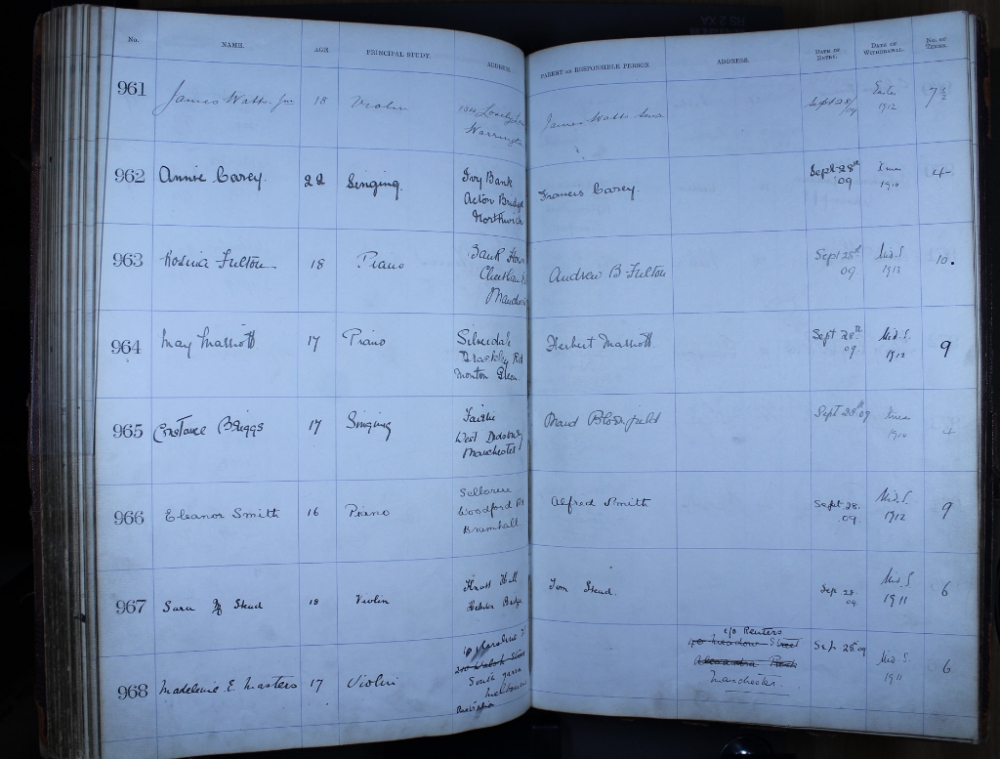 No. NAME. AGE. PRINCIPAL STUDY. ADDRESS. PARENT or RESPONSIBLE PERSON. ADDRESS. DATE OF ENTRY. DATE OF WITHDRAWAL. No. OF TERMS.
961 James Watts Junr 18 Violin James Watts Senr Sept 28/09 Easter 1912 7½
Warrington
962 Annie Carey. 22 Singing. Ivy Bank Francis Carey. Sept 28th 09 Xmas 1910 4
Acton Bridge
Northwich
963 Rosina Fulton 18 Piano Bank House Andrew B Fulton Sept 28th 09 Mid.S 1913 10.
Cheetham
Manchester
964 May Marriott 17 Piano Silverdale Herbert Marriott Sept 28th 09. Mid.S. 1912 9
Brackley Rd
Monton Green
965 Constance Briggs 17 Singing Maud Blomfield Sept 28th 09 Xmas 1910 4
West Didsbury
Manchester
966 Eleanor Smith 16 Piano Alfred Smith Sept. 28. 09. Mid.S. 1912 9
Woodford Rd
Bramhall
967 Sara Stead 18 Violin Tom Stead. Sep 28. 09 Mid S 1911 6
Hebden Bridge
968 Madeleine E. Masters 17 Violin c/o Renters Sept 28th 09 Mid S. 1911 6
Meadow Street
Alexandra Park
Manchester.
Melbourne
Australia